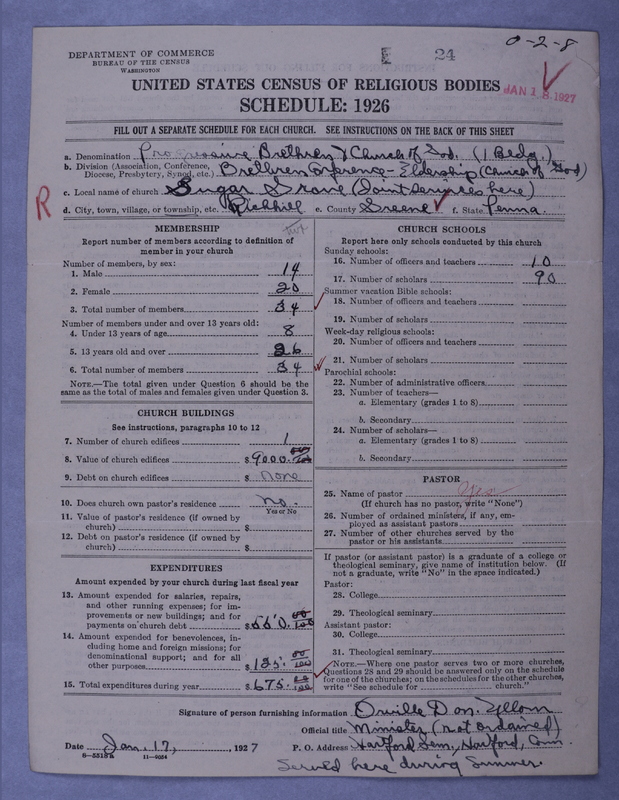 DEPARTMENT OF COMMERCE
BUREAU OF THE CENSUS
WASHINGTON
E 24
0-2-8
JAN 18 1927
UNITED STATES CENSUS OF RELIGIOUS BODIES
SCHEDULE: 1926
FILL OUT A SEPARATE SCHEDULE FOR EACH CHURCH. SEE INSTRUCTIONS ON THE BACK OF THIS SHEET
a. Denomination Progressive Brethren & Church of God. (1 Bldg.)
b. Division (Association, Conference, Diocese, Presbytery, Synod, etc.) Brethren Conference - Eldership (Church of God)
c. Local name of church Sugar Grove (Joint services here)
R
d. City, town, village, or township, etc. Richhill e. County Greene f. State Penna.
MEMBERSHIP
Report number of members according to definition of
member in your church
Number of members, by sex:
1. Male 14
2. Female 20
3. Total number of members 34
Number of members under and over 13 years old:
4. Under 13 years of age 8
5. 13 years old and over 26
6. Total number of members 34
NOTE.—The total given under Question 6 should be the
same as the total of males and females given under Question 3.
CHURCH BUILDINGS
See instructions, paragraphs 10 to 12
7. Number of church edifices 1
8. Value of church edifices $ 9000.00
9. Debt on church edifices $ None
10. Does church own pastor's residence No.
Yes or No
11. Value of pastor's residence (if owned by
church) $
12. Debt on pastor's residence (if owned by
church) $
EXPENDITURES
Amount expended by your church during last fiscal year
13. Amount expended for salaries, repairs,
and other running expenses; for im-
provements or new buildings; and for
payments on church debt $ 550.00/100
14. Amount expended for benevolences, in-
cluding home and foreign missions; for
denominational support; and for all
other purposes $ 125.00/100
15. Total expenditures during year $ 675.00/100
CHURCH SCHOOLS
Report here only schools conducted by this church
Sunday schools:
16. Number of officers and teachers 10
17. Number of scholars 90
Summer vacation Bible schools:
18. Number of officers and teachers
19. Number of scholars
Week-day religious schools:
20. Number of officers and teachers
21. Number of scholars
Parochial schools:
22. Number of administrative officers
23. Number of teachers—
a. Elementary (grades 1 to 8)
b. Secondary
24. Number of scholars—
a. Elementary (grades 1 to 8)
b. Secondary
PASTOR
25. Name of pastor Yes
(If church has no pastor, write "None")
26. Number of ordained ministers, if any, em-
ployed as assistant pastors
27. Number of other churches served by the
pastor or his assistants
If pastor (or assistant pastor) is a graduate of a college or
theological seminary, give name of institution below. (If
not a graduate, write "No" in the space indicated.)
Pastor:
28. College
29. Theological seminary
Assistant pastor:
30. College
31. Theological seminary
NOTE.—Where one pastor serves two or more churches,
Questions 28 and 29 should be answered only on the schedule
for one of the churches; on the schedules for the other churches,
write "See schedule for church."
Signature of person furnishing information Orville D.
Official title Minister (not ordained)
Date Jan. 17, 1927 P. O. Address Hartford Sem., Hartford, Conn.
6-5518a 11-9054
Served here during Summer.